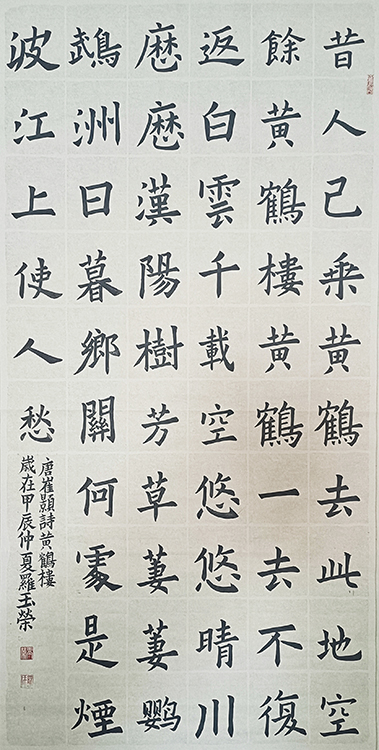 昔人已乘黄鶴去此地空
餘黄鶴樓黄鶴一去不復
返白雲千載空悠悠晴川
歷歷漢陽樹芳草萋萋鹦
鵡洲日暮鄉關何處是煙
波江上使人愁
唐崔顥詩黄鶴樓
歲在甲辰仲夏羅玉榮